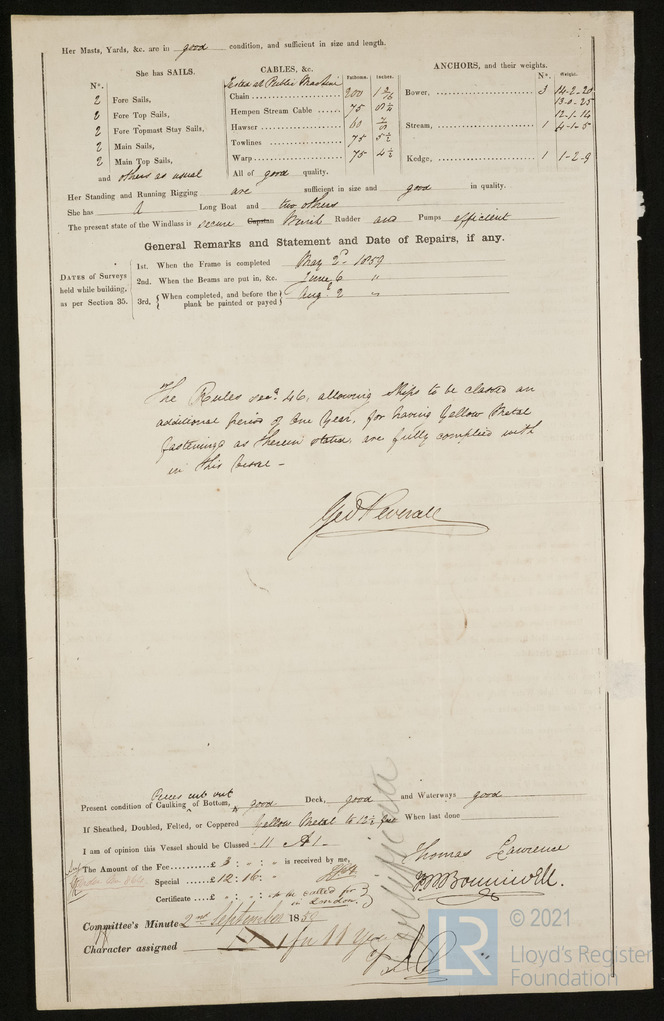 Her Masts, Yards, &c. are in good condition, and sufficient in size and length.
She has SAILS.
CABLES, &c.
Fathoms.
Inches.
ANCHORS, and their weights.
Nº.
Weight.
Nº.
Tested at Public Machine
2 Fore Sails,
Chain 200 1 2/16
Bower, 3 14-2-20
2 Fore Top Sails,
Hempen Stream Cable 75 8¼
13-0-25
2 Fore Topmast Stay Sails,
Hawser 60 7/8
12-1-14
2 Main Sails,
Towlines 75 5½
Stream, 1 4-1-5
2 Main Top Sails,
Warp 75 4½
Kedge, 1 1-2-9
and others as usual
All of good quality.
Her Standing and Running Rigging are sufficient in size and good in quality.
She has A Long Boat and two others
The present state of the Windlass is secure Capstan Rudder and Pumps efficient
General Remarks and Statement and Date of Repairs, if any.
DATES of Surveys held while building, as per Section 35.
1st. When the Frame is completed May 2d 1859
2nd. When the Beams are put in, &c. June 6 "
3rd, When completed, and before the plank be painted or payed Augt 2 "
The Rules Secn. 46, allowing Ships to be classed an
additional period of One Year, for having Yellow Metal
fastenings as therein stated, are fully complied with
in this Vessel -
Geo Peverall
Pieces cut out
Present condition of Caulking of Bottom, good Deck, good and Waterways good
If Sheathed, Doubled, Felted, or Coppered Yellow Metal to 12½ feet When last done
I am of opinion this Vessel should be Classed 11 A1 -
The Amount of the Fee £ 3 : " : " is received by me,
Thomas Lawrence
Special £ 12 : 16 : "
Certificate £ " : " : " to be called for
in London.
Committee's Minute 2nd September 1859
Character assigned A 1 for 11 Yrs
LR
© 2021
Lloyd's Register
Foundation